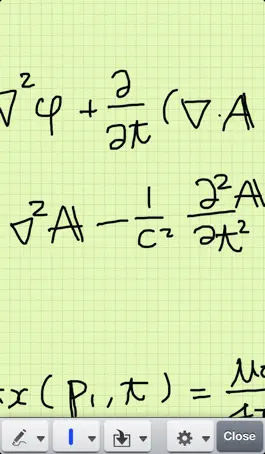 ∇²φ + ∂/∂t (∇·A
∇²A − 1/c² ∂²A/∂t²
x(p₁,t) =
Close